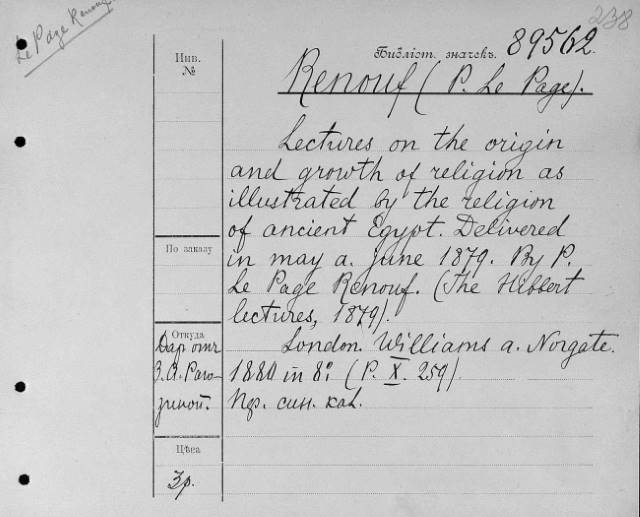 Le Page Renouf
238
Инв.
№
Библіот. значекъ. 89562.
Renouf (P. Le Page).
Lectures on the origin
and growth of religion as
illustrated by the religion
of ancient Egypt. Delivered
in may a. june 1879. By P.
Le Page Renouf. (The Hibbert
lectures, 1879).
London. Williams a. Norgate.
1880 in 8º. (P. X. 259).
По заказу
Откуда
Даръ отъ
З. А. Раго-
зиной.
Цѣна
3р.